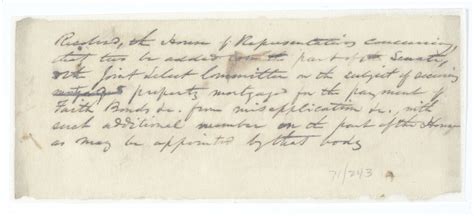 Resolved, the House of Representatives concurring,
that two be added on the part of the Senate,
to the Joint Select Committee on the subject of securing
mortgaged property mortgaged for the payment of
Faith Bonds &c. from misapplication &c. with
such additional member on the part of the House
as may be appointed by that body
71/243